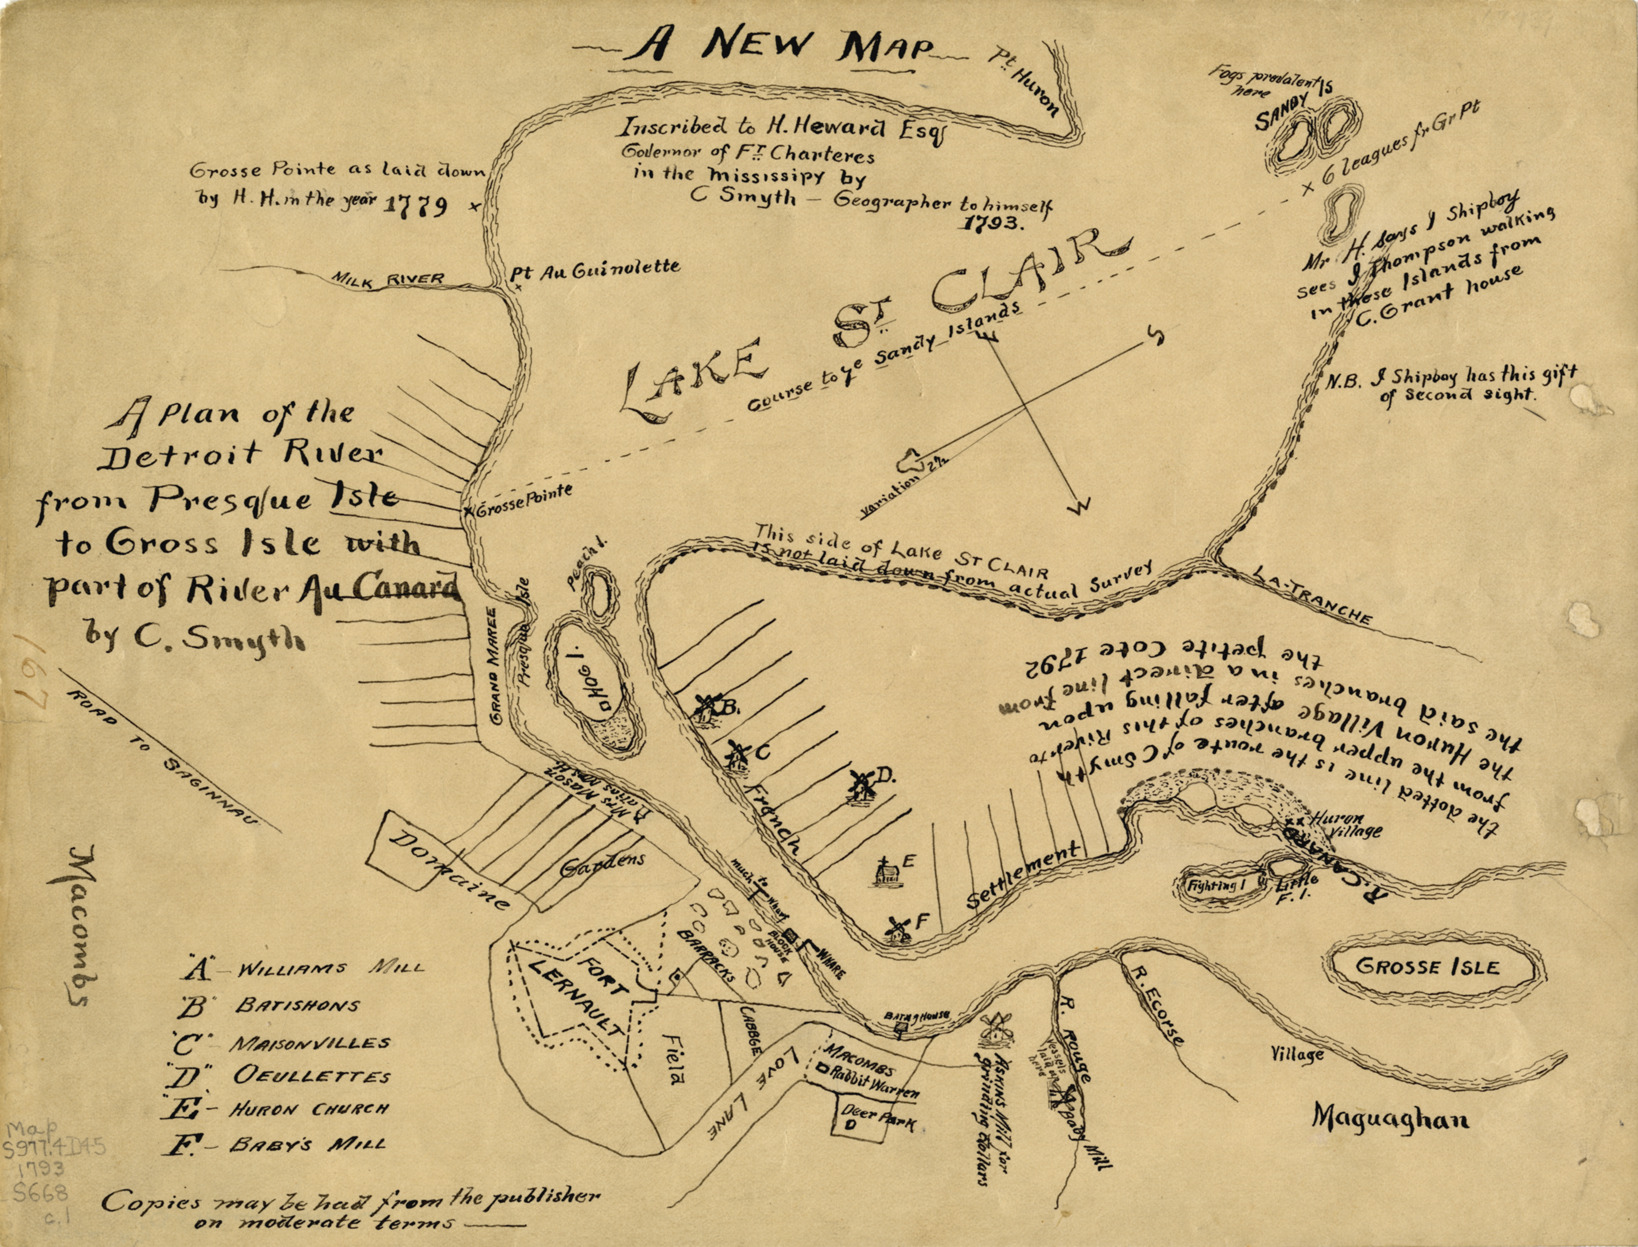 A NEW MAP
Pt. Huron
Inscribed to H. Heward Esqr
Governor of FT. Charteres
in the Mississipy by
C Smyth — Geographer to himself
1793.
Fogs prevalent
here
SANDY IS
x 6 leagues fr Gr Pt
Grosse Pointe as laid down
by H. H. in the year 1779 x
Mr H. Says J Shipboy
sees J Thompson walking
in these Islands from
C. Grant house
N.B. J Shipboy has this gift
of second sight.
MILK RIVER
Pt Au Guinolette
LAKE ST. CLAIR
Course to ye Sandy Islands
E
S
W
Variation 2½
A Plan of the
Detroit River
from Presque Isle
to Gross Isle with
part of River Au Canard
by C. Smyth
x Grosse Pointe
This side of Lake ST CLAIR
is not laid down from actual Survey
LA-TRANCHE
Peach I.
HOG I.
GRAND MAREE
Presque Isle
the dotted line is the route of C Smyth
from the upper branches of this River to
the Huron Village after falling upon
the said branches in a direct line from
the petite Cote 1792
ROAD TO SAGINNAU
Macombs
B.
C
D.
E
F
French
Settlement
Huron
Village
R. CANARD
Fighting I
Little
F. I.
GROSSE ISLE
Domaine
Gardens
BARRACKS
BLOCK
HOUSE
WHARF
FORT
LERNAULT
Field
CABBGE
LOVE LANE
MACOMBS
Rabbit Warren
Deer Park
D
Askins Mill for
grinding dollars
R. Rouge
Vessels
laid up
here
Mill
R. Ecorse
Village
Maguaghan
"A" — WILLIAMS MILL
"B" BATISHONS
"C" MAISONVILLES
"D" OEULLETTES
"E" — HURON CHURCH
F. — BABY'S MILL
Copies may be had from the publisher
on moderate terms —
Map
S977.4D45
1793
S668
c.1
167